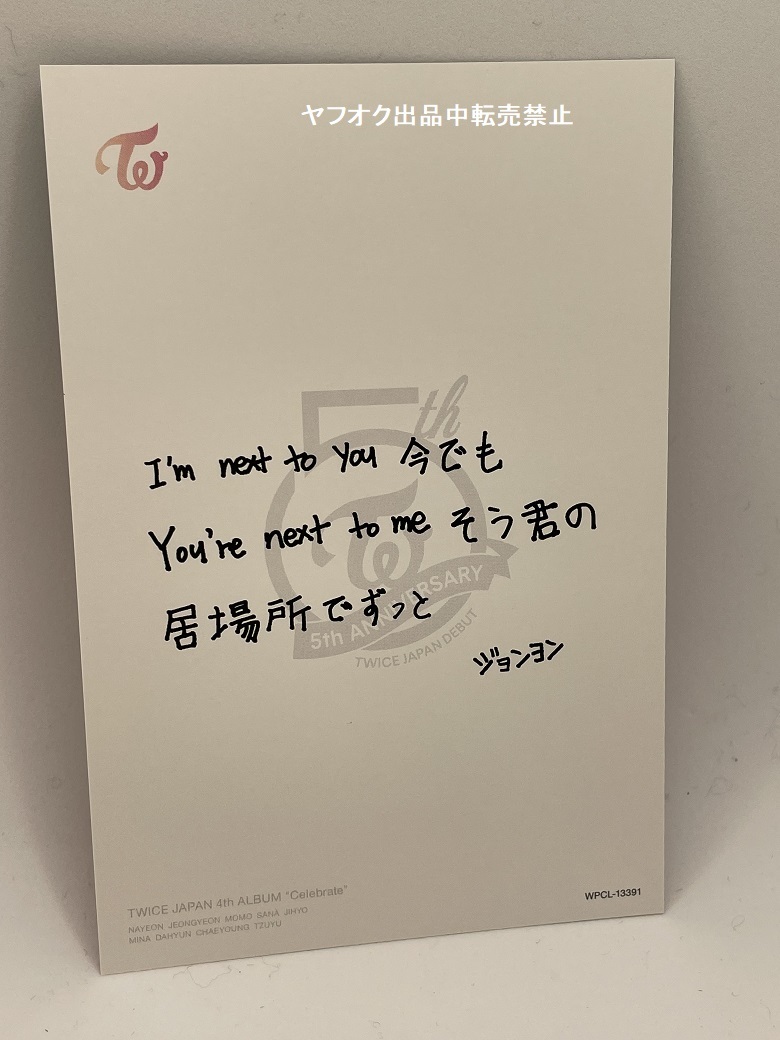 ヤフオク出品中転売禁止
Tw
5th
I'm next to You 今でも
You're next to me そう君の
居場所でずっと
ジョンヨン
Tw
5th ANNIVERSARY
TWICE JAPAN DEBUT
TWICE JAPAN 4th ALBUM "Celebrate"
NAYEON JEONGYEON MOMO SANA JIHYO
MINA DAHYUN CHAEYOUNG TZUYU
WPCL-13391